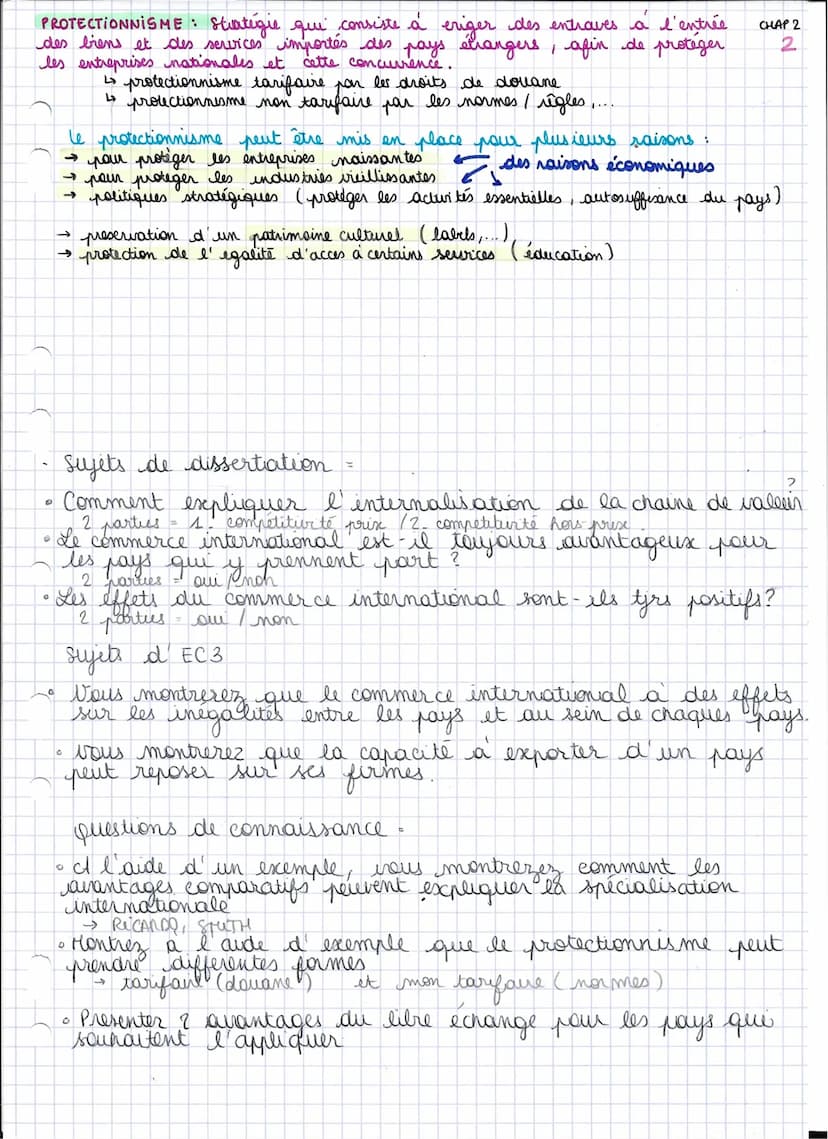 PROTECTIONNISME : Stratégie qui consiste à eriger des entraves à l'entrée
CHAP 2
des biens et des services importés des pays étrangers, afin de protéger
2
les entreprises nationales et cette concurrence.
↳ protectionnisme tarifaire par les droits de douane
↳ protectionnisme non tarifaire par les normes / règles,...
Le protectionnisme peut être mis en place pour plusieurs raisons :
→ pour protéger les entreprises naissantes
des raisons économiques
→ pour protéger les industries vieillissantes
→ politiques stratégiques (protéger les activités essentielles, autosuffisance du pays)
→ preservation d'un patrimoine culturel (labels,...)
→ protection de l'egalité d'acces à certains services (éducation)
- Sujets de dissertation =
• Comment expliquer l'internalisation de la chaine de valeur ?
2 parties = 1- compétitivité prix / 2- compétitivité hors-prix
• Le commerce international est-il toujours avantageux pour
les pays qui y prennent part ?
2 parties = oui / non
• Les effets du commerce international sont-ils tjrs positifs?
2 parties = oui / non
Sujets d'EC3
• Vous montrerez que le commerce international a des effets
sur les inégalités entre les pays et au sein de chaques pays.
• Vous montrerez que la capacité à exporter d'un pays
peut reposer sur ses firmes.
questions de connaissance =
• A l'aide d'un exemple, vous montrerez comment les
avantages comparatifs peuvent expliquer la spécialisation
internationale
→ RICARDO, SMITH
• Montrez a l'aide d'exemple que le protectionnisme peut
prendre differentes formes
→ tarifaire (douane) et non tarifaire (normes)
• Presenter 2 avantages du libre échange pour les pays qui
souhaitent l'appliquer